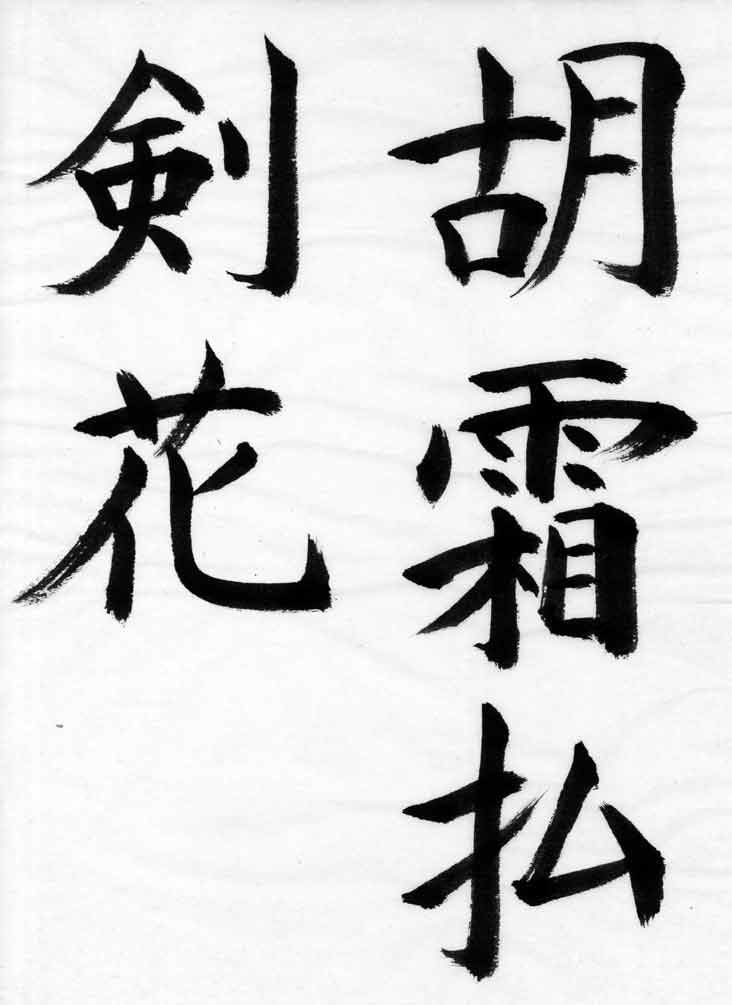 胡霜払
剣花